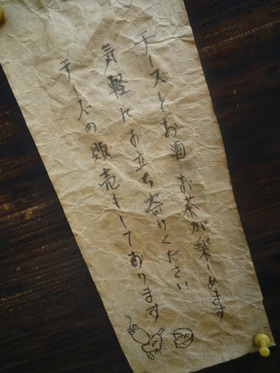 チーズとお酒 お茶が楽しめます
気軽にお立ち寄りください
チーズの販売もしております